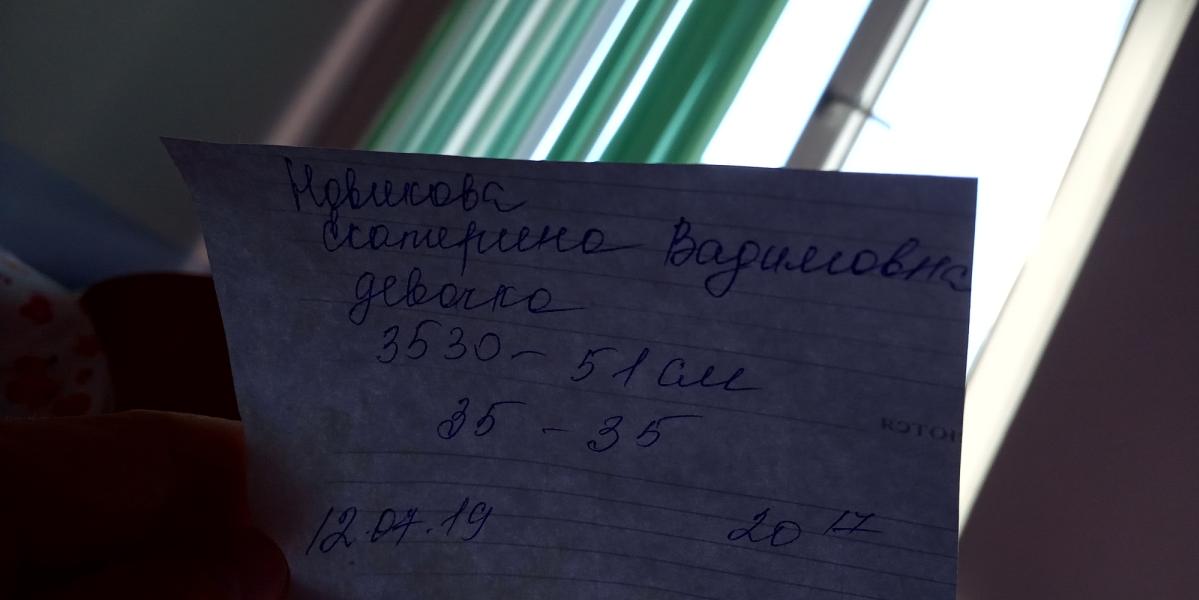 Новикова
Екатерина Вадимовна
девочка
3530 – 51 см
35 – 35
12.07.19 20 17